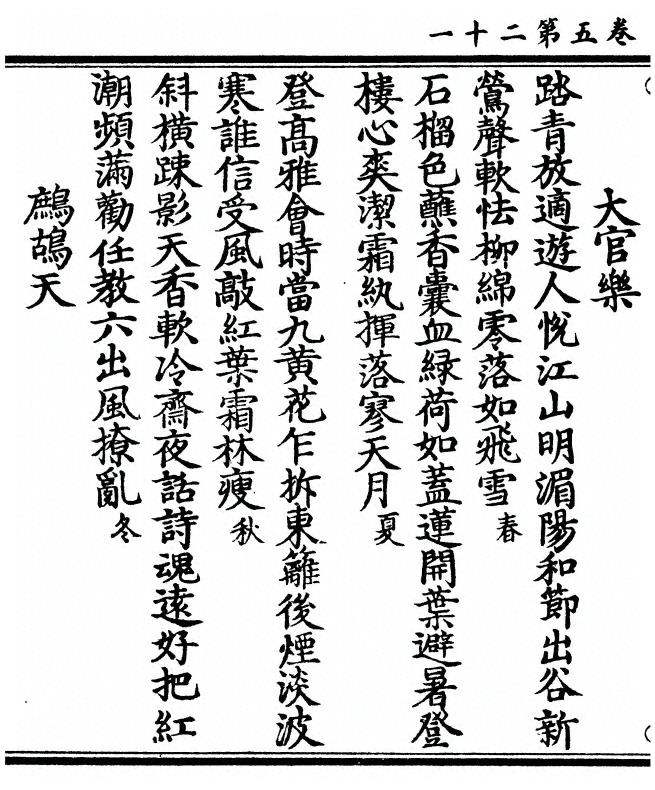 卷五第二十一
大官樂
踏青放適遊人悅江山明湄陽和節出谷新
鶯聲軟怯柳綿零落如飛雪春
石榴色蘸香囊血緑荷如蓋蓮開葉避暑登
樓心爽潔霜紈揮落寥天月夏
登高雅會時當九黄花乍拆東籬後煙淡波
寒誰信受風敲紅葉霜林瘦秋
斜橫踈影天香軟冷齋夜話詩魂遠好把紅
潮頻滿勸任教六出風撩亂冬
鷓鴣天